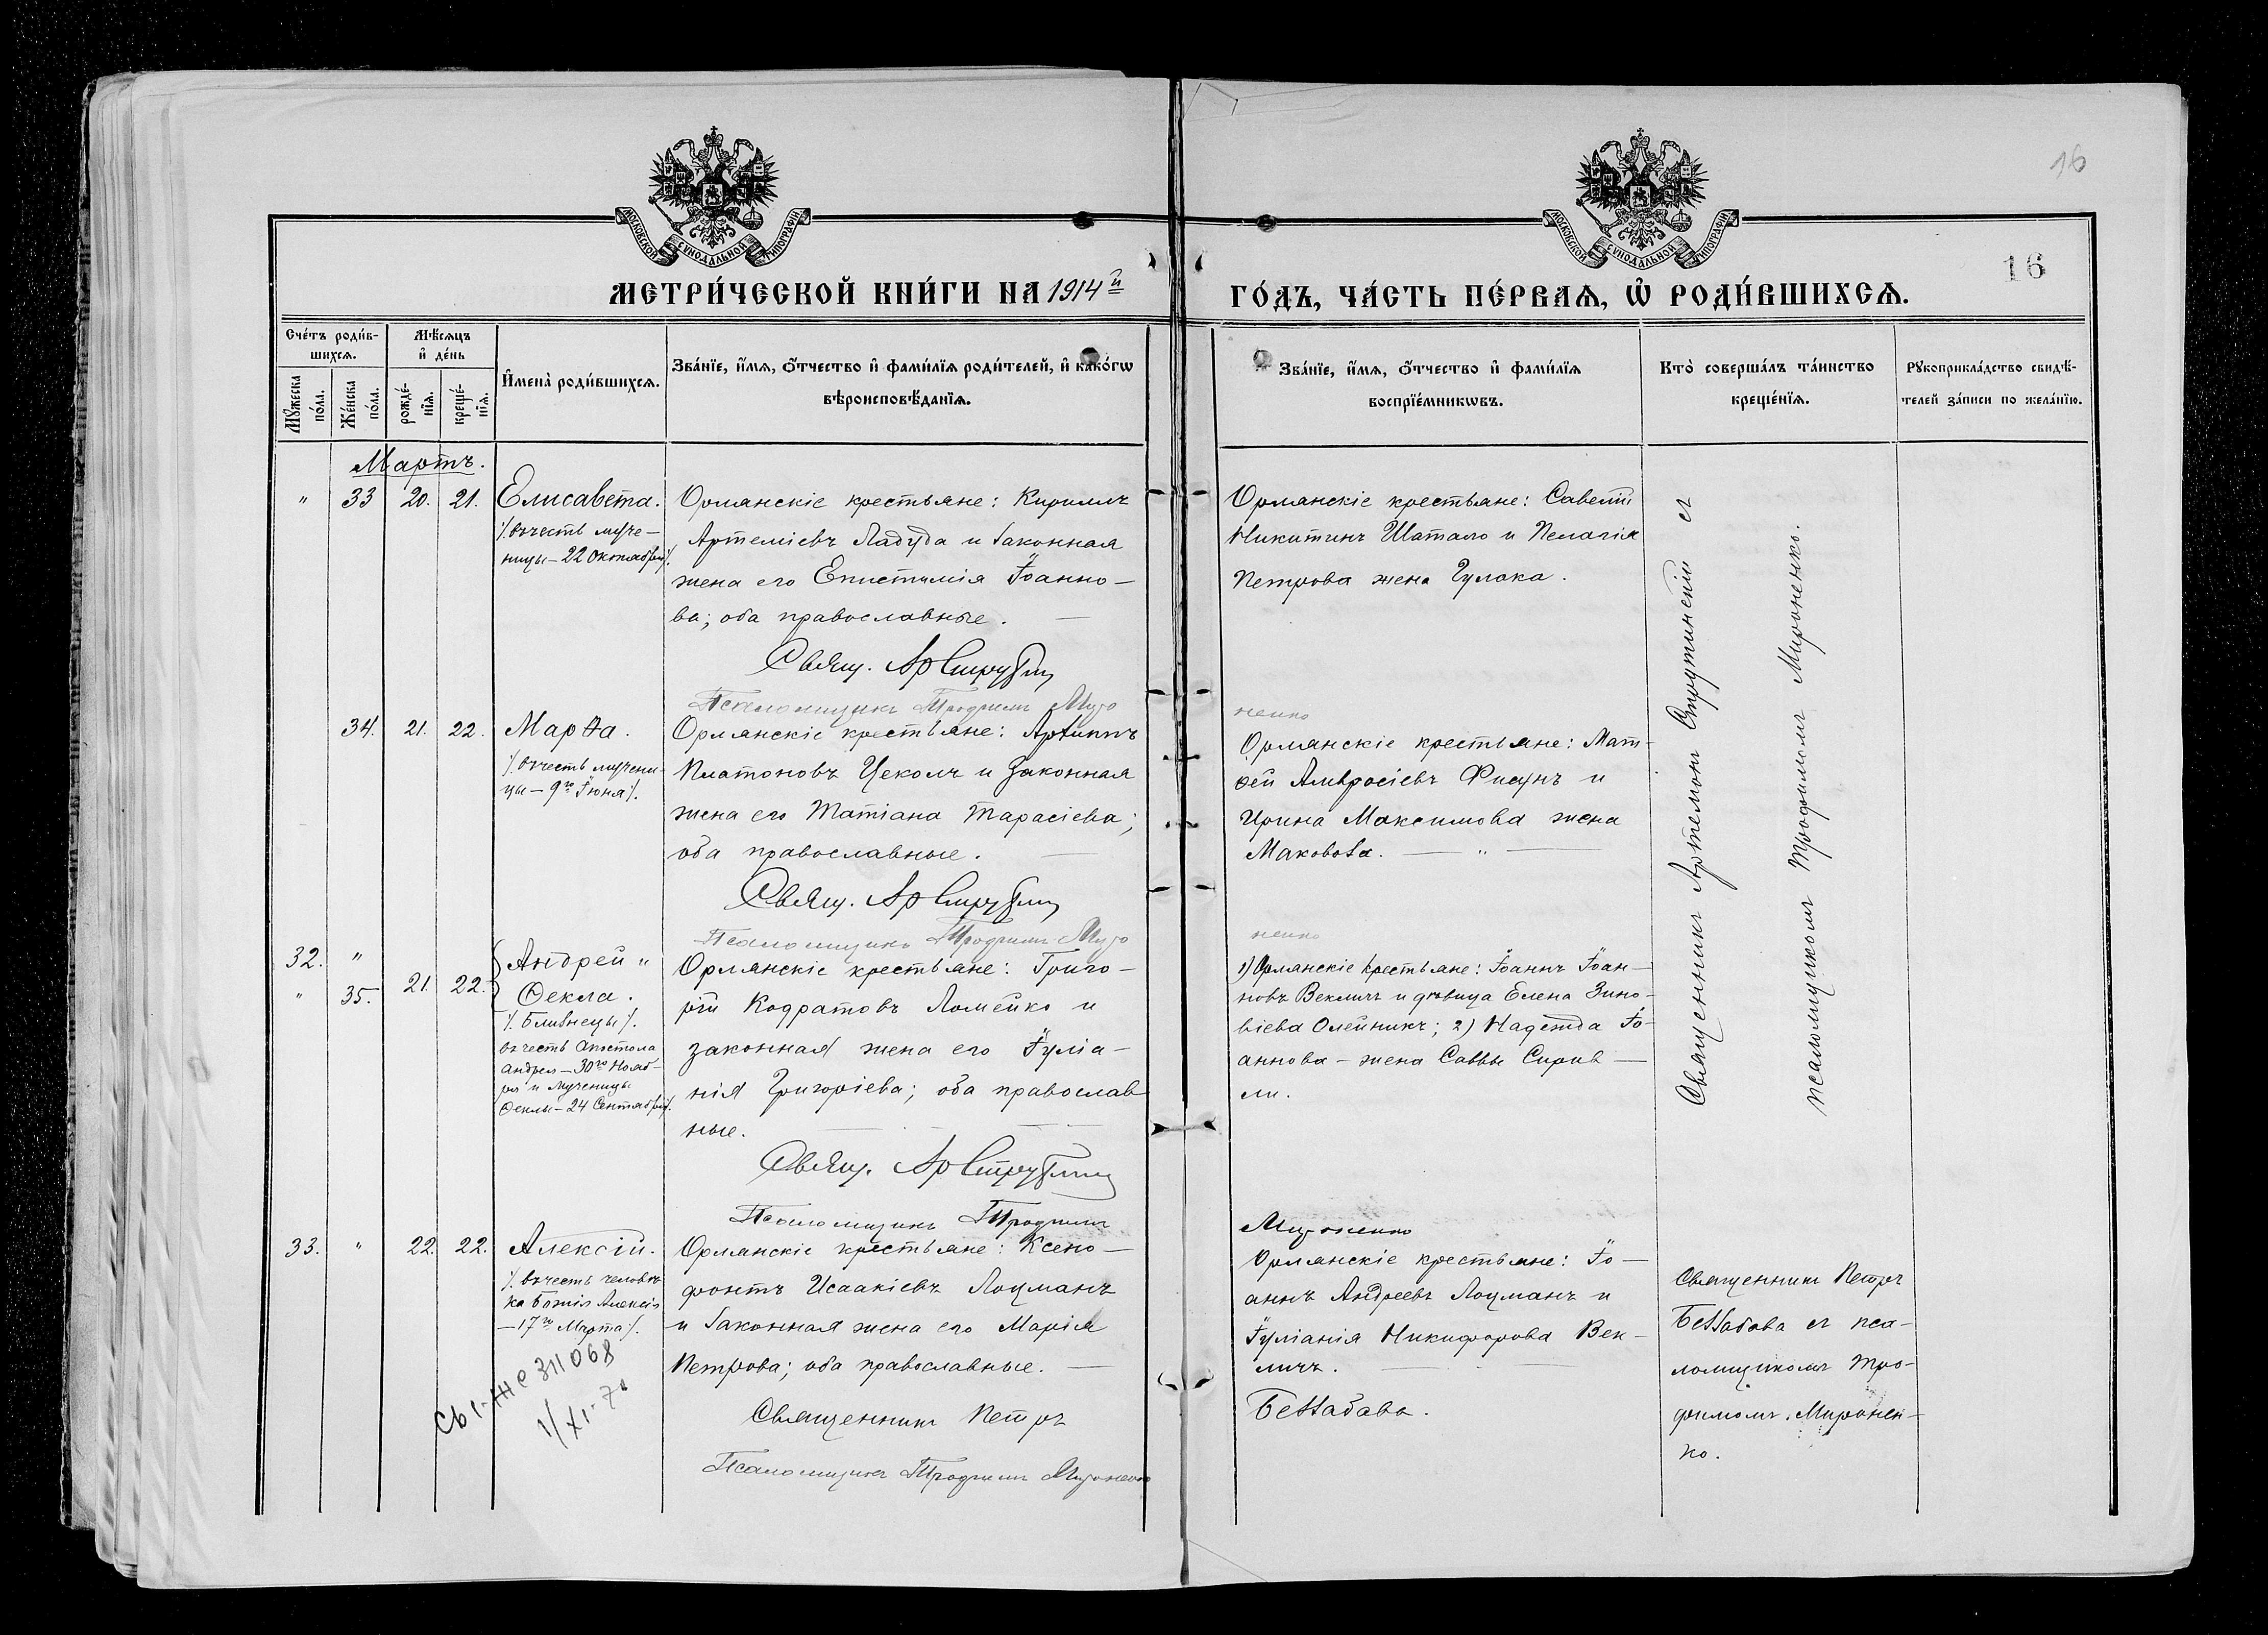 16
МОСКОВСКОЙ СѴНОДАЛЬНОЙ ТИПОГРАФІИ
МОСКОВСКОЙ СѴНОДАЛЬНОЙ ТИПОГРАФІИ
16
МЕТРИ́ЧЕСКОЙ КНИ́ГИ НА 1914й
ГО́ДЪ, ЧА́СТЬ ПЕ́РВАѦ, Ѡ҆ РОДИ́ВШИХСѦ.
Сче́тъ роди́в-
шихсѧ.
Мꙋ́жеска по́ла.
Же́нска по́ла.
Мѣ́сѧцъ
и҆ де́нь
рожде́-
нїѧ.
креще́-
нїѧ.
И҆мена̀ роди́вшихсѧ.
Зва́нїе, и҆́мѧ, ѻ҆́тчество и҆ фами́лїѧ роди́телей, и҆ како́гѡ
вѣроисповѣ́данїѧ.
Зва́нїе, и҆́мѧ, ѻ҆́тчество и҆ фами́лїѧ
воспрїе́мникѡвъ.
Кто̀ соверша́лъ та́инство
креще́нїѧ.
Рꙋкоприкла́дство свидѣ́-
телей за́писи по жела́нїю.
Мартъ.
" 33 20. 21. Елисавета.
/. въ честь муче-
ницы – 22 Октября/.
Орлянскіе крестьяне: Кириллъ
Артеміевъ Ладуда и законная
жена его Епистимія Іоанно-
ва; оба православные.
Свящ. Ар Струтин
Псаломщикъ Трофимъ Миро
ненко
Орлянскіе крестьяне: Савелій
Никитинъ Шатало и Пелагія
Петрова жена Гулака.
34. 21. 22. Марѳа.
/. въ честь мучени-
цы – 9го Іюня/.
Орлянскіе крестьяне:
Платоновъ Цеколъ и законная
жена его Татіана Тарасіева;
оба православные.
Свящ. Ар Струтин
Псаломщикъ Трофимъ Миро
ненко
Орлянскіе крестьяне: Мат-
ѳей Амвросіевъ Фисунъ и
Ирина Максимова жена
Маковоза. — " —
32. "
" 35. 21. 22. Андрей "
Ѳекла.
/. Близнецы/.
въ честь Апостола
Андрея – 30го Нояб-
ря и Мученицы
Ѳеклы – 24 Сентября/.
Орлянскіе крестьяне: Григо-
рій Кодратовъ Ломейко и
законная жена его Іуліа-
нія Григоріева; оба православ
ные.
Свящ. Ар Струтин
Псаломщикъ Трофимъ
Мироненко
1) Орлянскіе крестьяне: Іоаннъ Іоан-
новъ Векличъ и дѣвица Елена Зино-
віева Олейникъ; 2) Надежда Іо-
аннова – жена Саввы Сирив-
ли.
Священникъ Артемонъ Струтинскій съ
псаломщикомъ Трофимомъ Мироненко.
33. " 22. 22. Алексій.
/. въ честь человѣ
ка Божія Алексія
– 17го Марта/.
311068
1/XI-7
Орлянскіе крестьяне: Ксено-
фонтъ Исаакіевъ Лоцманъ
и законная жена его Марія
Петрова; оба православные.
Священникъ Петръ
Беззабава.
Псаломщикъ Трофимъ Мироненко
Орлянскіе крестьяне: Іо-
аннъ Андреевъ Лоцманъ и
Іуліанія Никифорова Век-
личъ.
Священникъ Петръ
Беззабава съ пса-
ломщикомъ Тро-
фимомъ Миронен-
ко.